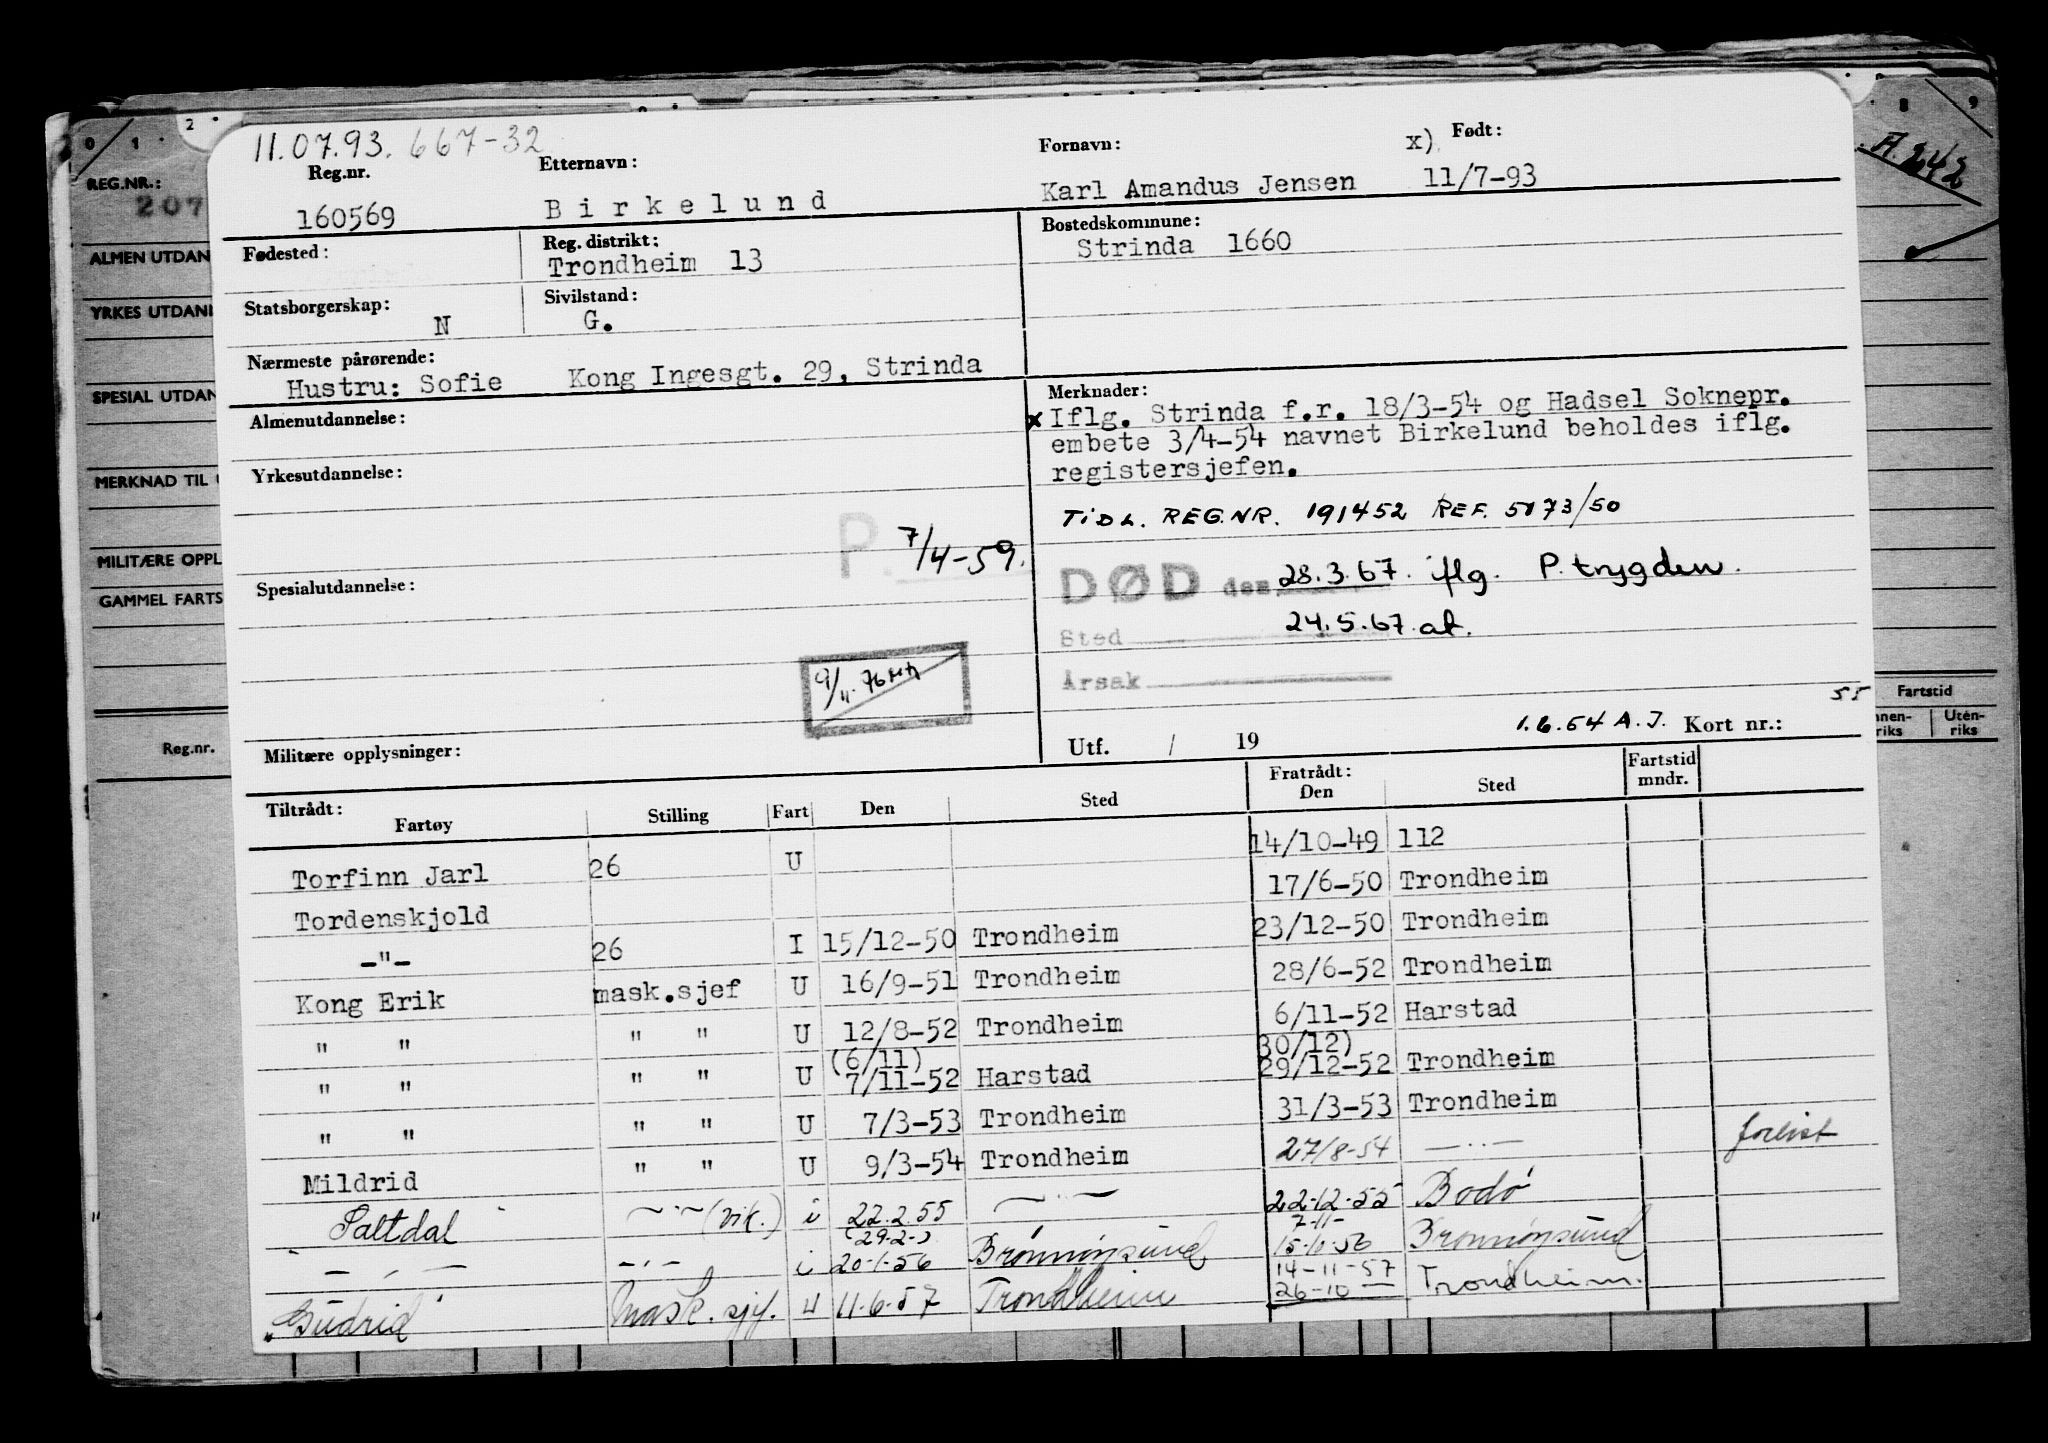 0 1 2 8 9
A.242
11.07.93. 667-32
Reg.nr. Etternavn: Fornavn: x) Født:
160569 Birkelund Karl Amandus Jensen 11/7-93
Fødested: Reg. distrikt: Bostedskommune:
Trondheim 13 Strinda 1660
Statsborgerskap: Sivilstand:
N G.
Nærmeste pårørende:
Hustru: Sofie Kong Ingesgt. 29, Strinda
Almenutdannelse:
Yrkesutdannelse:
P. 7/4-59.
Spesialutdannelse:
9/11.76
Militære opplysninger:
Merknader:
x Iflg. Strinda f.r. 18/3-54 og Hadsel Soknepr.
embete 3/4-54 navnet Birkelund beholdes iflg.
registersjefen.
TIDL. REG.NR. 191452 REF. 5173/50
DØD den 28.3.67. iflg. P. trygden.
Sted 24.5.67. at.
Årsak
Utf. / 19 1.6.54 A.J. Kort nr.: 55
Tiltrådt: Fratrådt:
Fartøy Stilling Fart Den Sted Den Sted Fartstid mndr.
Torfinn Jarl 26 U 14/10-49 112
Tordenskjold 17/6-50 Trondheim
-"- 26 I 15/12-50 Trondheim 23/12-50 Trondheim
Kong Erik mask.sjef U 16/9-51 Trondheim 28/6-52 Trondheim
" " " " U 12/8-52 Trondheim 6/11-52 Harstad
(6/11) 30/12)
" " " " U 7/11-52 Harstad 29/12-52 Trondheim
" " " " U 7/3-53 Trondheim 31/3-53 Trondheim
Mildrid " " U 9/3-54 Trondheim 27/8-54 —"— forlist
Saltdal —"— (vik.) i 22.2.55 —"— 22.12.55 Bodö
(29.2.) 7-11-
— " — — " — i 20.1.56 Brønnøysund 15.10.56 Brønnøysund
14-11-57
"Gudrid" Mask. sjf. U 11.6.57 Trondheim 26-10- Trondheim.
REG.NR.:
207
ALMEN UTDAN
YRKES UTDANI
SPESIAL UTDAN
MERKNAD TIL
MILITÆRE OPPL
GAMMEL FARTS
Reg.nr.
Fartstid
nnen-
riks
Uten-
riks